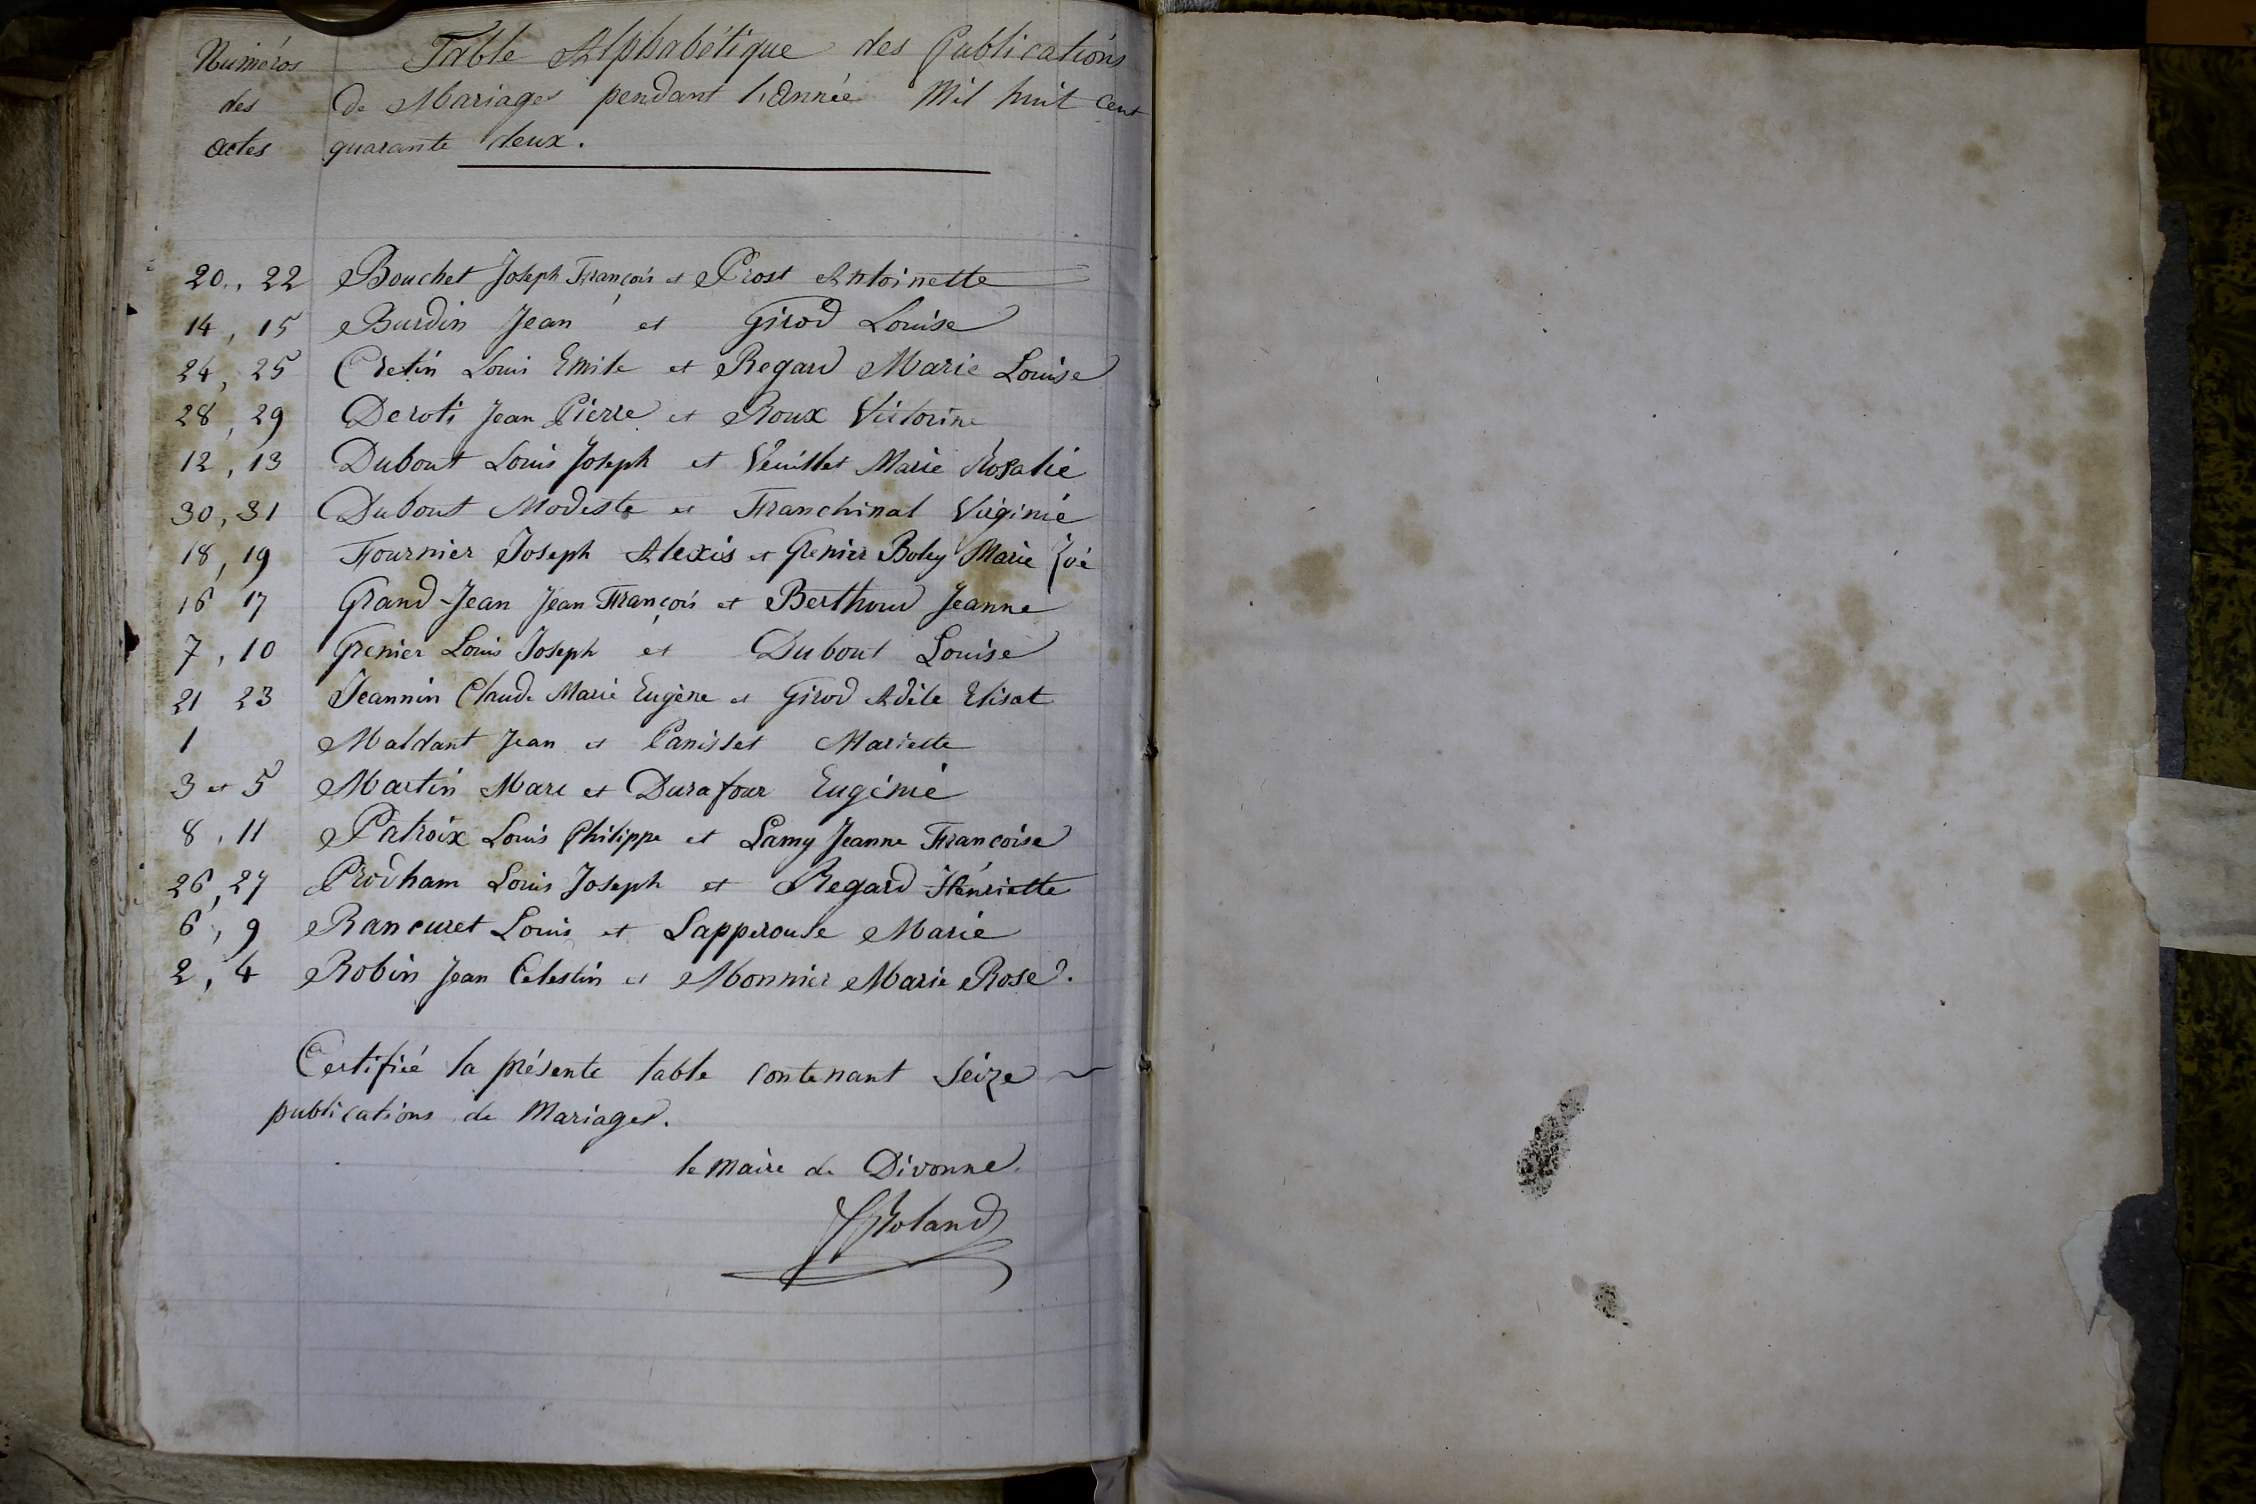 Numéros
des
actes
Table Alphabétique des Publications
de Mariages pendant l'année Mil huit Cent
quarante deux.
20., 22 Bouchet Joseph François et Prost Antoinette
14, 15 Burdin Jean et Girod Louise
24, 25 Cretin Louis Emile et Regard Marie Louise
28, 29 Deroti Jean Pierre et Roux Victorine
12, 13 Dubout Louis Joseph et Veuillet Marie Rosalie
30, 31 Dubout Modeste et Franchinal Virginie
18, 19 Fournier Joseph Alexis et Grenier Boley Marie Zoé
16 17 Grand-Jean Jean François et Berthoud Jeanne
7, 10 Grenier Louis Joseph et Dubout Louise
21 23 Jeannin Claude Marie Eugène et Girod Adèle Elisat
1 Maldant Jean et Panisset Mariette
3 et 5 Martin Marc et Durafour Eugénie
8, 11 Patroix Louis Philippe et Lamy Jeanne Françoise
26, 27 Prodham Louis Joseph et Regard Hénriette
6, 9 Rancuret Louis et Lapperouse Marie
2, 4 Robin Jean Célestin et Monnier Marie Rose.
Certifié la présente table contenant Seize
publications de Mariages.
le Maire de Divonne.
Roland